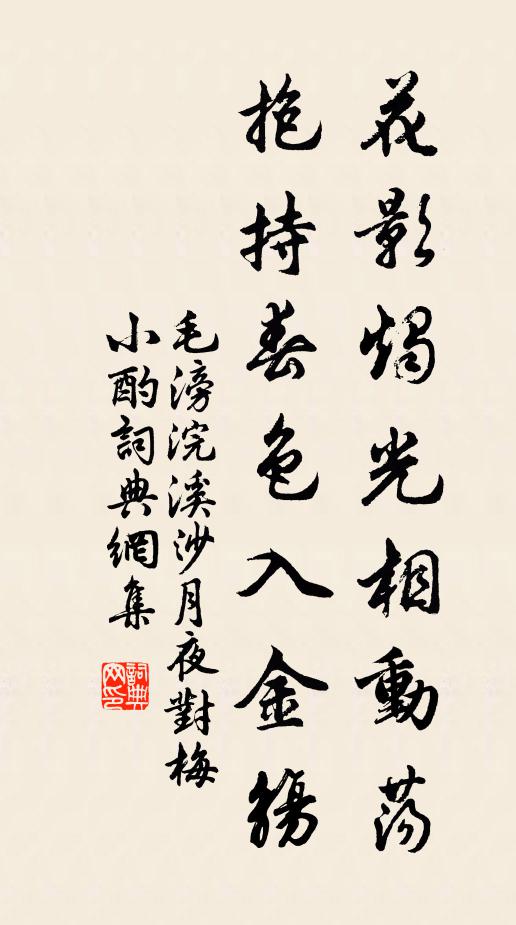 花影燭光相動蕩
抱持春色入金觴
毛滂浣溪沙月夜對梅
小酌詞典網集
詞典
网印